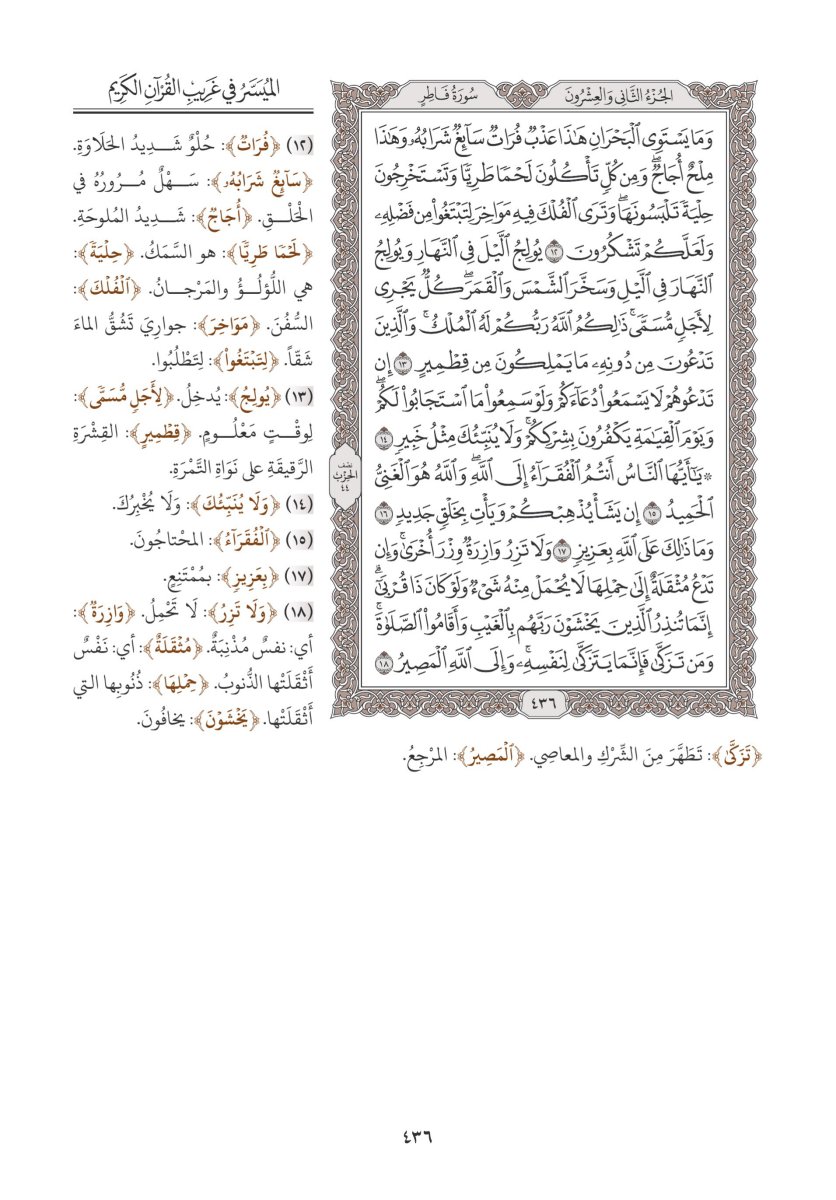 الجُزْءُ الثَّانِي وَالعِشْرُونَ
سُورَةُ فَاطِرٍ
وَمَا يَسْتَوِي ٱلْبَحْرَانِ هَٰذَا عَذْبٌ فُرَاتٌ سَآئِغٌ شَرَابُهُۥ وَهَٰذَا
مِلْحٌ أُجَاجٌ ۖ وَمِن كُلٍّ تَأْكُلُونَ لَحْمًا طَرِيًّا وَتَسْتَخْرِجُونَ
حِلْيَةً تَلْبَسُونَهَا ۖ وَتَرَى ٱلْفُلْكَ فِيهِ مَوَاخِرَ لِتَبْتَغُوا۟ مِن فَضْلِهِۦ
وَلَعَلَّكُمْ تَشْكُرُونَ ١٢ يُولِجُ ٱلَّيْلَ فِي ٱلنَّهَارِ وَيُولِجُ
ٱلنَّهَارَ فِي ٱلَّيْلِ وَسَخَّرَ ٱلشَّمْسَ وَٱلْقَمَرَ ۖ كُلٌّ يَجْرِي
لِأَجَلٍ مُّسَمًّى ۚ ذَٰلِكُمُ ٱللَّهُ رَبُّكُمْ لَهُ ٱلْمُلْكُ ۚ وَٱلَّذِينَ
تَدْعُونَ مِن دُونِهِۦ مَا يَمْلِكُونَ مِن قِطْمِيرٍ ١٣ إِن
تَدْعُوهُمْ لَا يَسْمَعُوا۟ دُعَآءَكُمْ وَلَوْ سَمِعُوا۟ مَا ٱسْتَجَابُوا۟ لَكُمْ ۖ
وَيَوْمَ ٱلْقِيَٰمَةِ يَكْفُرُونَ بِشِرْكِكُمْ ۚ وَلَا يُنَبِّئُكَ مِثْلُ خَبِيرٍ ١٤
۞ يَٰٓأَيُّهَا ٱلنَّاسُ أَنتُمُ ٱلْفُقَرَآءُ إِلَى ٱللَّهِ ۖ وَٱللَّهُ هُوَ ٱلْغَنِيُّ
ٱلْحَمِيدُ ١٥ إِن يَشَأْ يُذْهِبْكُمْ وَيَأْتِ بِخَلْقٍ جَدِيدٍ ١٦
وَمَا ذَٰلِكَ عَلَى ٱللَّهِ بِعَزِيزٍ ١٧ وَلَا تَزِرُ وَازِرَةٌ وِزْرَ أُخْرَىٰ ۚ وَإِن
تَدْعُ مُثْقَلَةٌ إِلَىٰ حِمْلِهَا لَا يُحْمَلْ مِنْهُ شَيْءٌ وَلَوْ كَانَ ذَا قُرْبَىٰٓ ۗ
إِنَّمَا تُنذِرُ ٱلَّذِينَ يَخْشَوْنَ رَبَّهُم بِٱلْغَيْبِ وَأَقَامُوا۟ ٱلصَّلَوٰةَ ۚ
وَمَن تَزَكَّىٰ فَإِنَّمَا يَتَزَكَّىٰ لِنَفْسِهِۦ ۚ وَإِلَى ٱللَّهِ ٱلْمَصِيرُ ١٨
نصف
الحِزْب
٤٤
٤٣٦
المُيَسَّرُ فِي غَرِيبِ القُرْآنِ الكَرِيمِ
(١٢) ﴿فُرَاتٌ﴾: حُلْوٌ شَدِيدُ الحَلَاوَةِ.
﴿سَآئِغٌ شَرَابُهُۥ﴾: سَهْلٌ مُرُورُهُ فِي
الْحَلْقِ. ﴿أُجَاجٌ﴾: شَدِيدُ المُلوحَةِ.
﴿لَحْمًا طَرِيًّا﴾: هو السَّمَكُ. ﴿حِلْيَةً﴾:
هي اللُّؤلُؤُ والمَرْجانُ. ﴿ٱلْفُلْكَ﴾:
السُّفُنَ. ﴿مَوَاخِرَ﴾: جوارِيَ تَشُقُّ الماءَ
شَقّاً. ﴿لِتَبْتَغُوا۟﴾: لِتَطْلُبُوا.
(١٣) ﴿يُولِجُ﴾: يُدخِلُ. ﴿لِأَجَلٍ مُّسَمًّى﴾:
لِوقْتٍ مَعْلُومٍ. ﴿قِطْمِيرٍ﴾: القِشْرَةِ
الرَّقيقَةِ على نَوَاةِ التَّمْرَةِ.
(١٤) ﴿وَلَا يُنَبِّئُكَ﴾: وَلَا يُخْبِرُكَ.
(١٥) ﴿ٱلْفُقَرَآءُ﴾: المحْتاجُونَ.
(١٧) ﴿بِعَزِيزٍ﴾: بمُمْتَنِعٍ.
(١٨) ﴿وَلَا تَزِرُ﴾: لَا تَحْمِلُ. ﴿وَازِرَةٌ﴾:
أي: نفسٌ مُذْنِبَةٌ. ﴿مُثْقَلَةٌ﴾: أي: نَفْسٌ
أَثْقَلَتْها الذُّنوبُ. ﴿حِمْلِهَا﴾: ذُنُوبِها التي
أَثْقَلَتْها. ﴿يَخْشَوْنَ﴾: يخافُونَ.
﴿تَزَكَّىٰ﴾: تَطَهَّرَ مِنَ الشِّرْكِ والمعاصِي. ﴿ٱلْمَصِيرُ﴾: المرْجِعُ.
٤٣٦